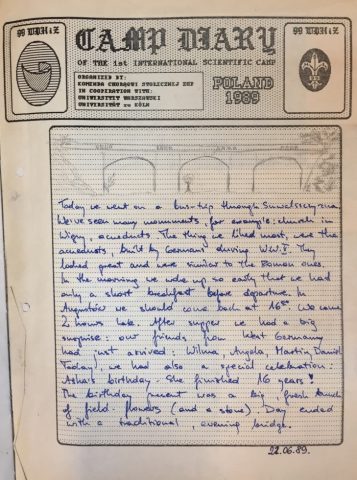 99 WDH i Z
99 WDH i Z
CAMP DIARY
OF THE 1st INTERNATIONAL SCIENTIFIC CAMP
ORGANIZED BY:
KOMENDA CHORĄGWI STOŁECZNEJ ZHP
IN COOPERATION WITH:
UNIWERSYTET WARSZAWSKI
UNIVERSITÄT zu KÖLN
POLAND
1989
Today we went on a bus-trip through Suwalszczyzna.
We've seen many monuments, for example: church in
Wigry, aqueducts. The thing we liked most, were the
aqueducts, built by Germans during W.W.I. They
looked great and were similar to the Roman ones.
In the morning we woke up so early that we had
only a short breakfast before departure. In
Augustów we should come back at 16°° We came
2 hours late. After supper we had a big
surprise: our friends from West Germany
had just arrived: Wilma, Angela, Martin, Daniel
Today, we had also a special celebration:
Asha's birthday. She finished 16 years!
The birthday present was a big, fresh bunch
of field-flowers (and a stone). Day ended
with a traditional, evening bridge.
22.06.89.